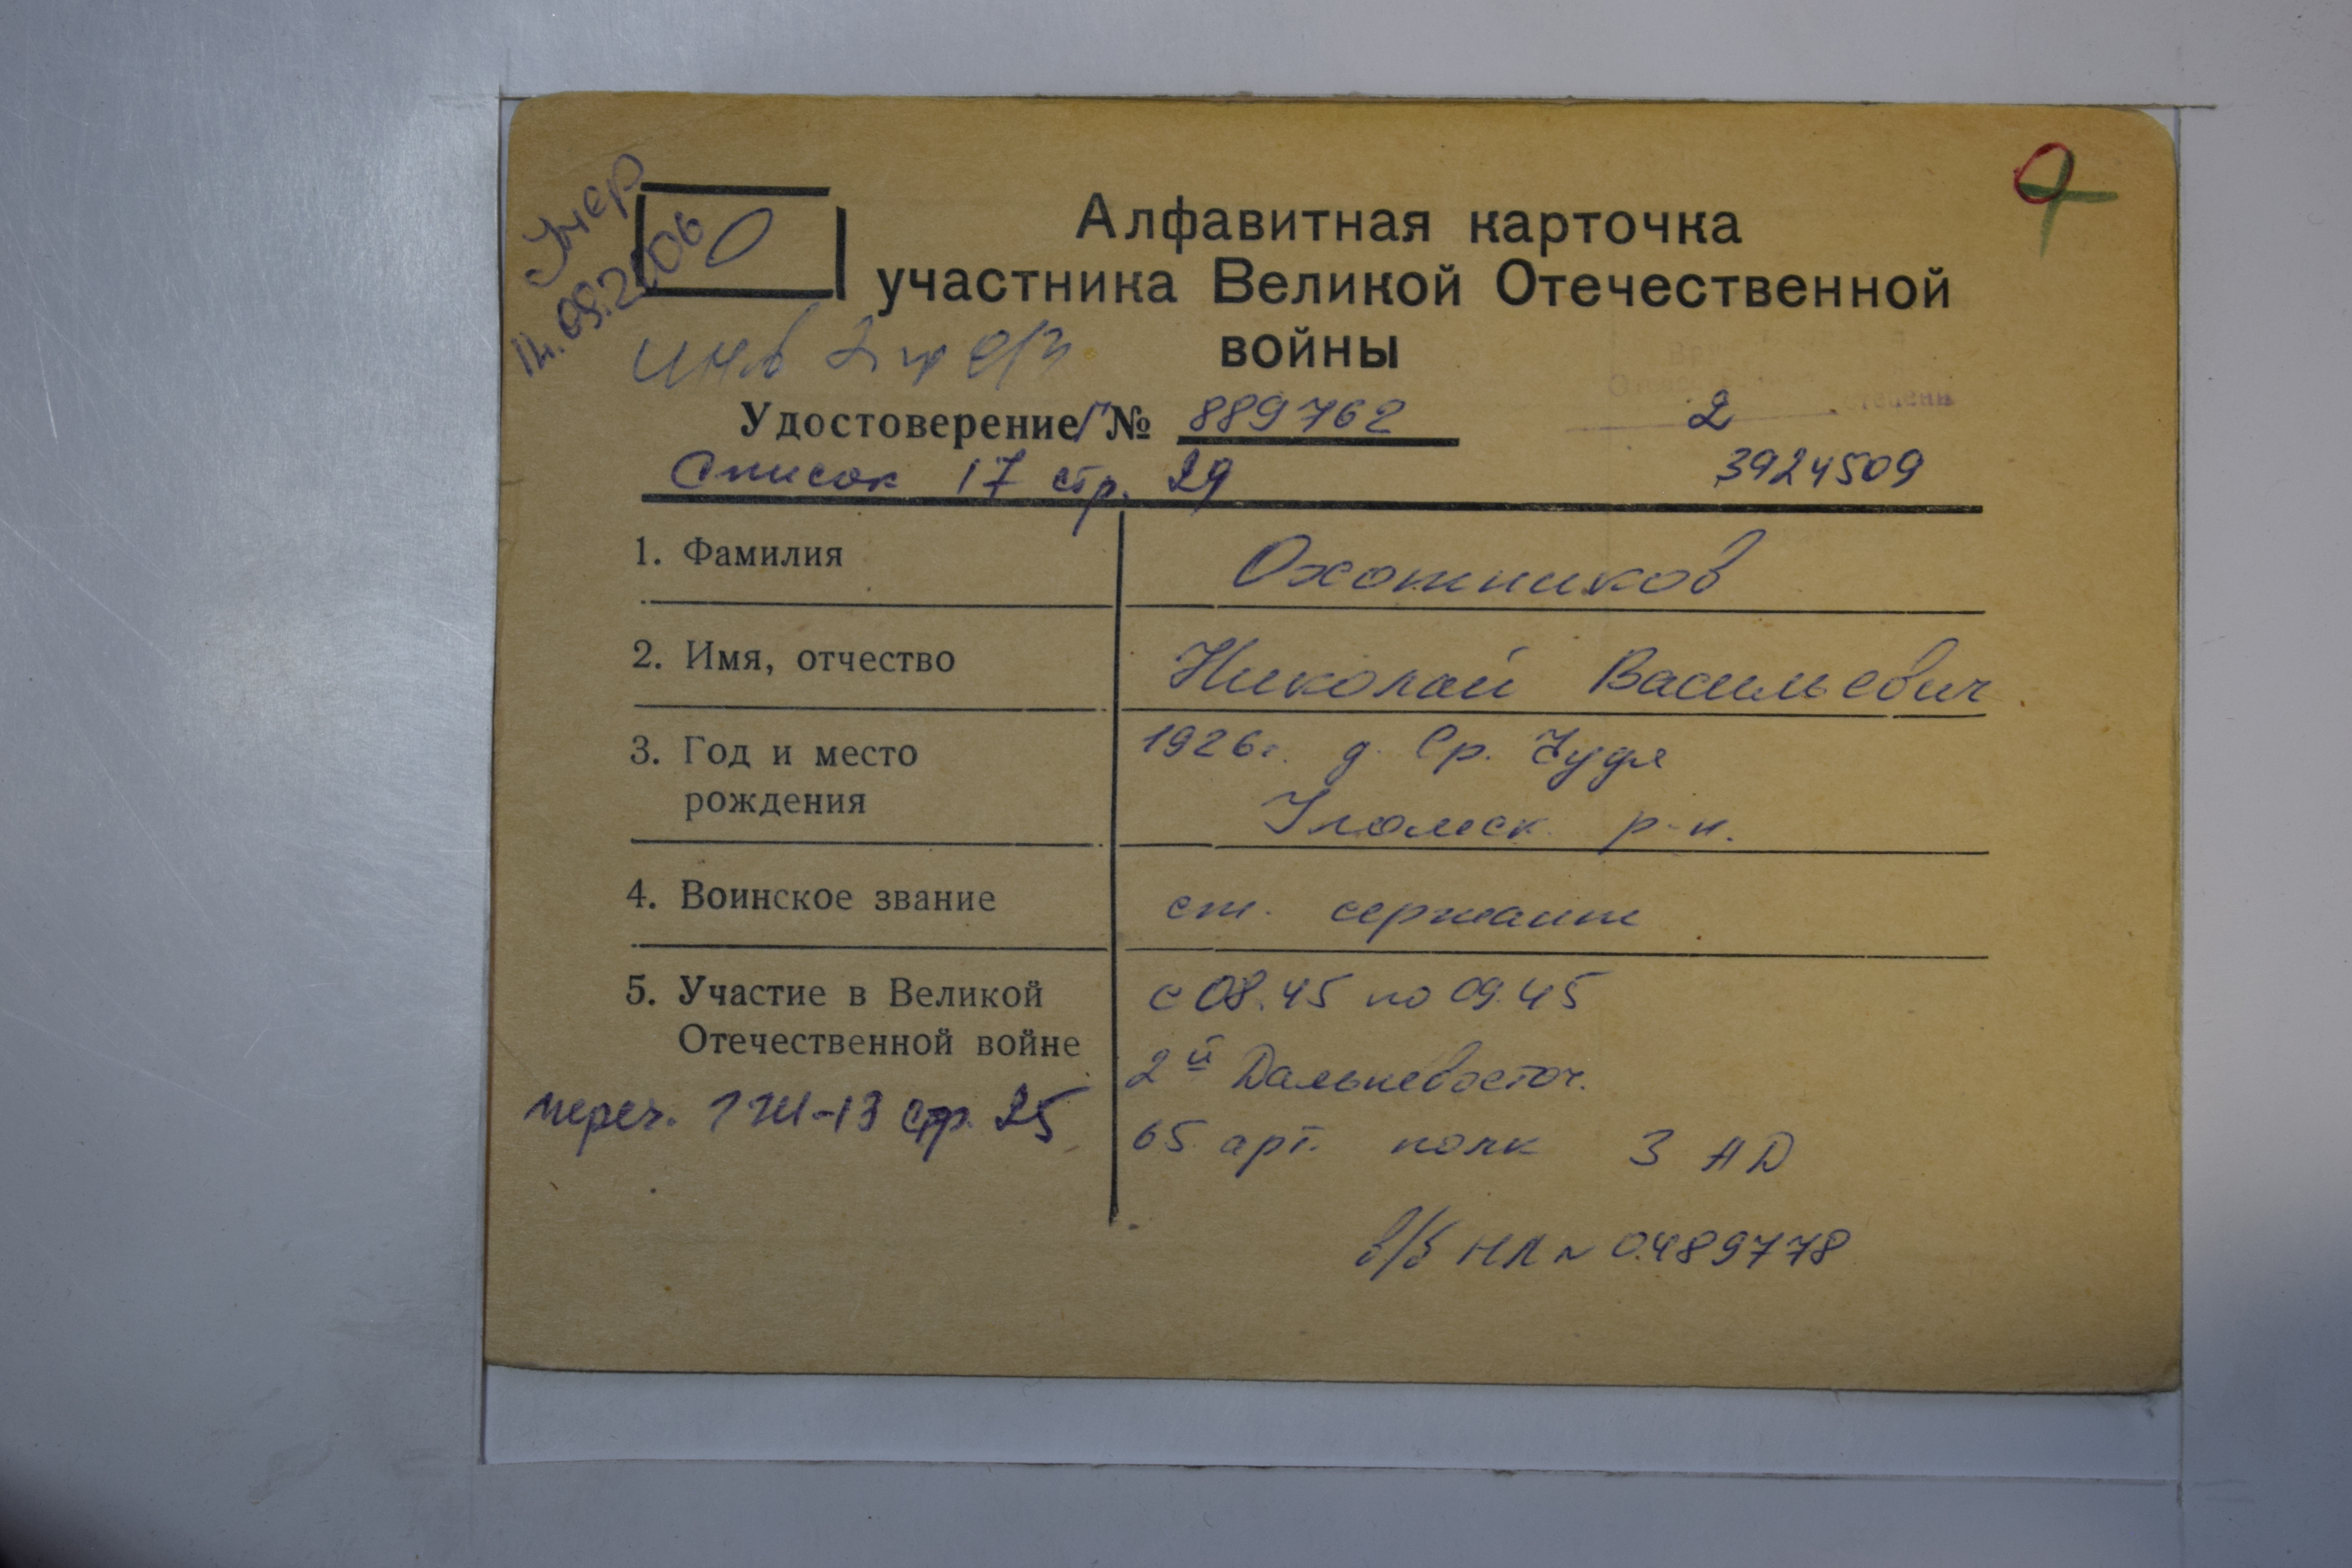 Умер
О
14.09.2006
Алфавитная карточка
участника Великой Отечественной
войны
инв 2 гр о/з
Удостоверение Г № 889762
2 степени
Список 17 стр. 29
3924509
1. Фамилия Охотников
2. Имя, отчество Николай Васильевич
3. Год и место 1926г. д. Ср. Чудя
рождения р-н.
4. Воинское звание ст. сержант
5. Участие в Великой с 08.45 по 09.45
Отечественной войне 2й Дальневосточ.
переч. стр. 25 65 арт. полк 3 АД
в/б НЛ № 0489778